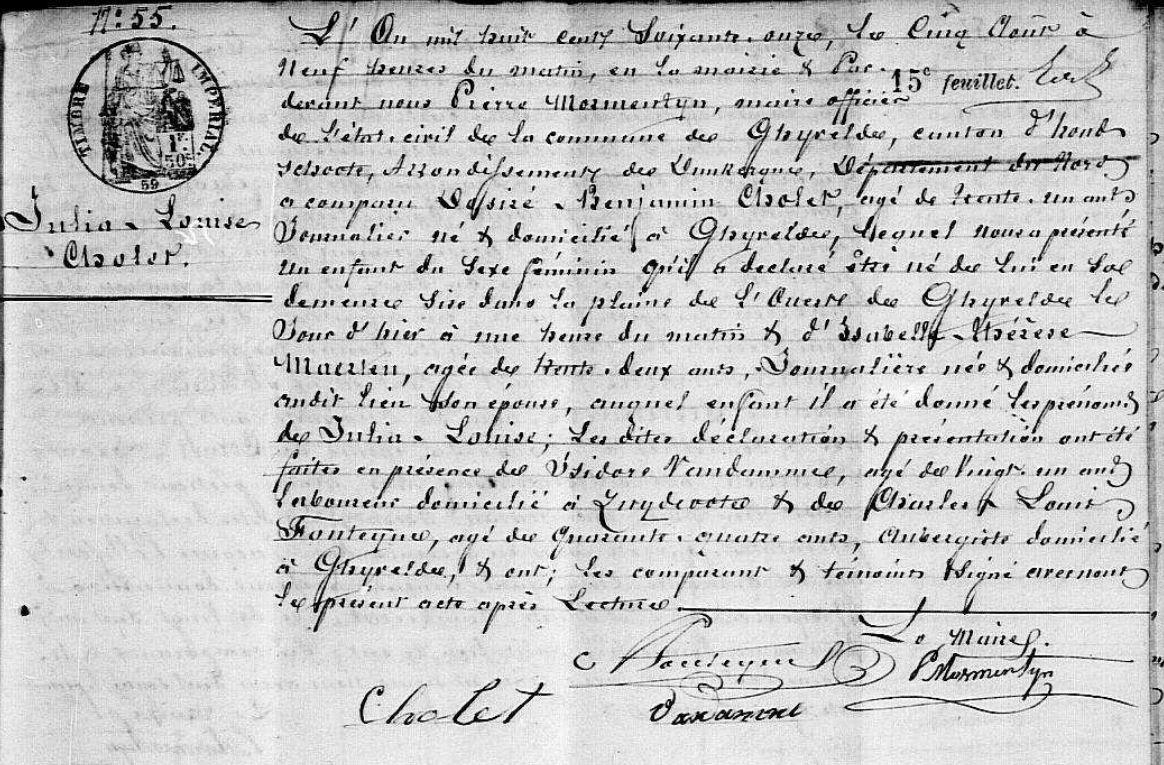 N.° 55.
TIMBRE IMPÉRIAL.
1F
50c
59
Julia-Louise
Cholet.
L'An mil huit cent Soixante-onze, le Cinq Août à
Neuf heures du matin, en la mairie & Par-
15e feuillet.
devant nous Pierre Mormentyn, maire officier
de l'état-civil de la commune de Ghyvelde, canton d'hond-
schoote, Arrondissement de Dunkerque, Département du Nord
a comparu Desiré-Benjamin Cholet, agé de trente-un ans
Journalier né & domicilié à Ghyvelde, lequel nous a présenté
un enfant du Sexe féminin qu'il a declaré être né de lui en sa
demeure sise dans la plaine de l'Ouest de Ghyvelde le
Jour d'hier à une heure du matin & d'Isabelle-Thérèse
Maerten, agée de trente-deux ans, Journalière née & domiciliée
audit lieu son épouse, auquel enfant il a été donné les prénoms
de Julia-Louise; Les dites déclaration & présentation ont été
faites en présence de Isidore Vandamme, agé de vingt-un ans
laboureur domicilié à Zuydcoote & de Charles Louis
Fonteyne, agé de quarante-quatre ans, aubergiste domicilié
à Ghyvelde, & ont; les comparant & témoins signé avec nous
le présent acte après Lecture.
Le Maire.
C Fonteyne
PMormentyn
Cholet
Vandamme